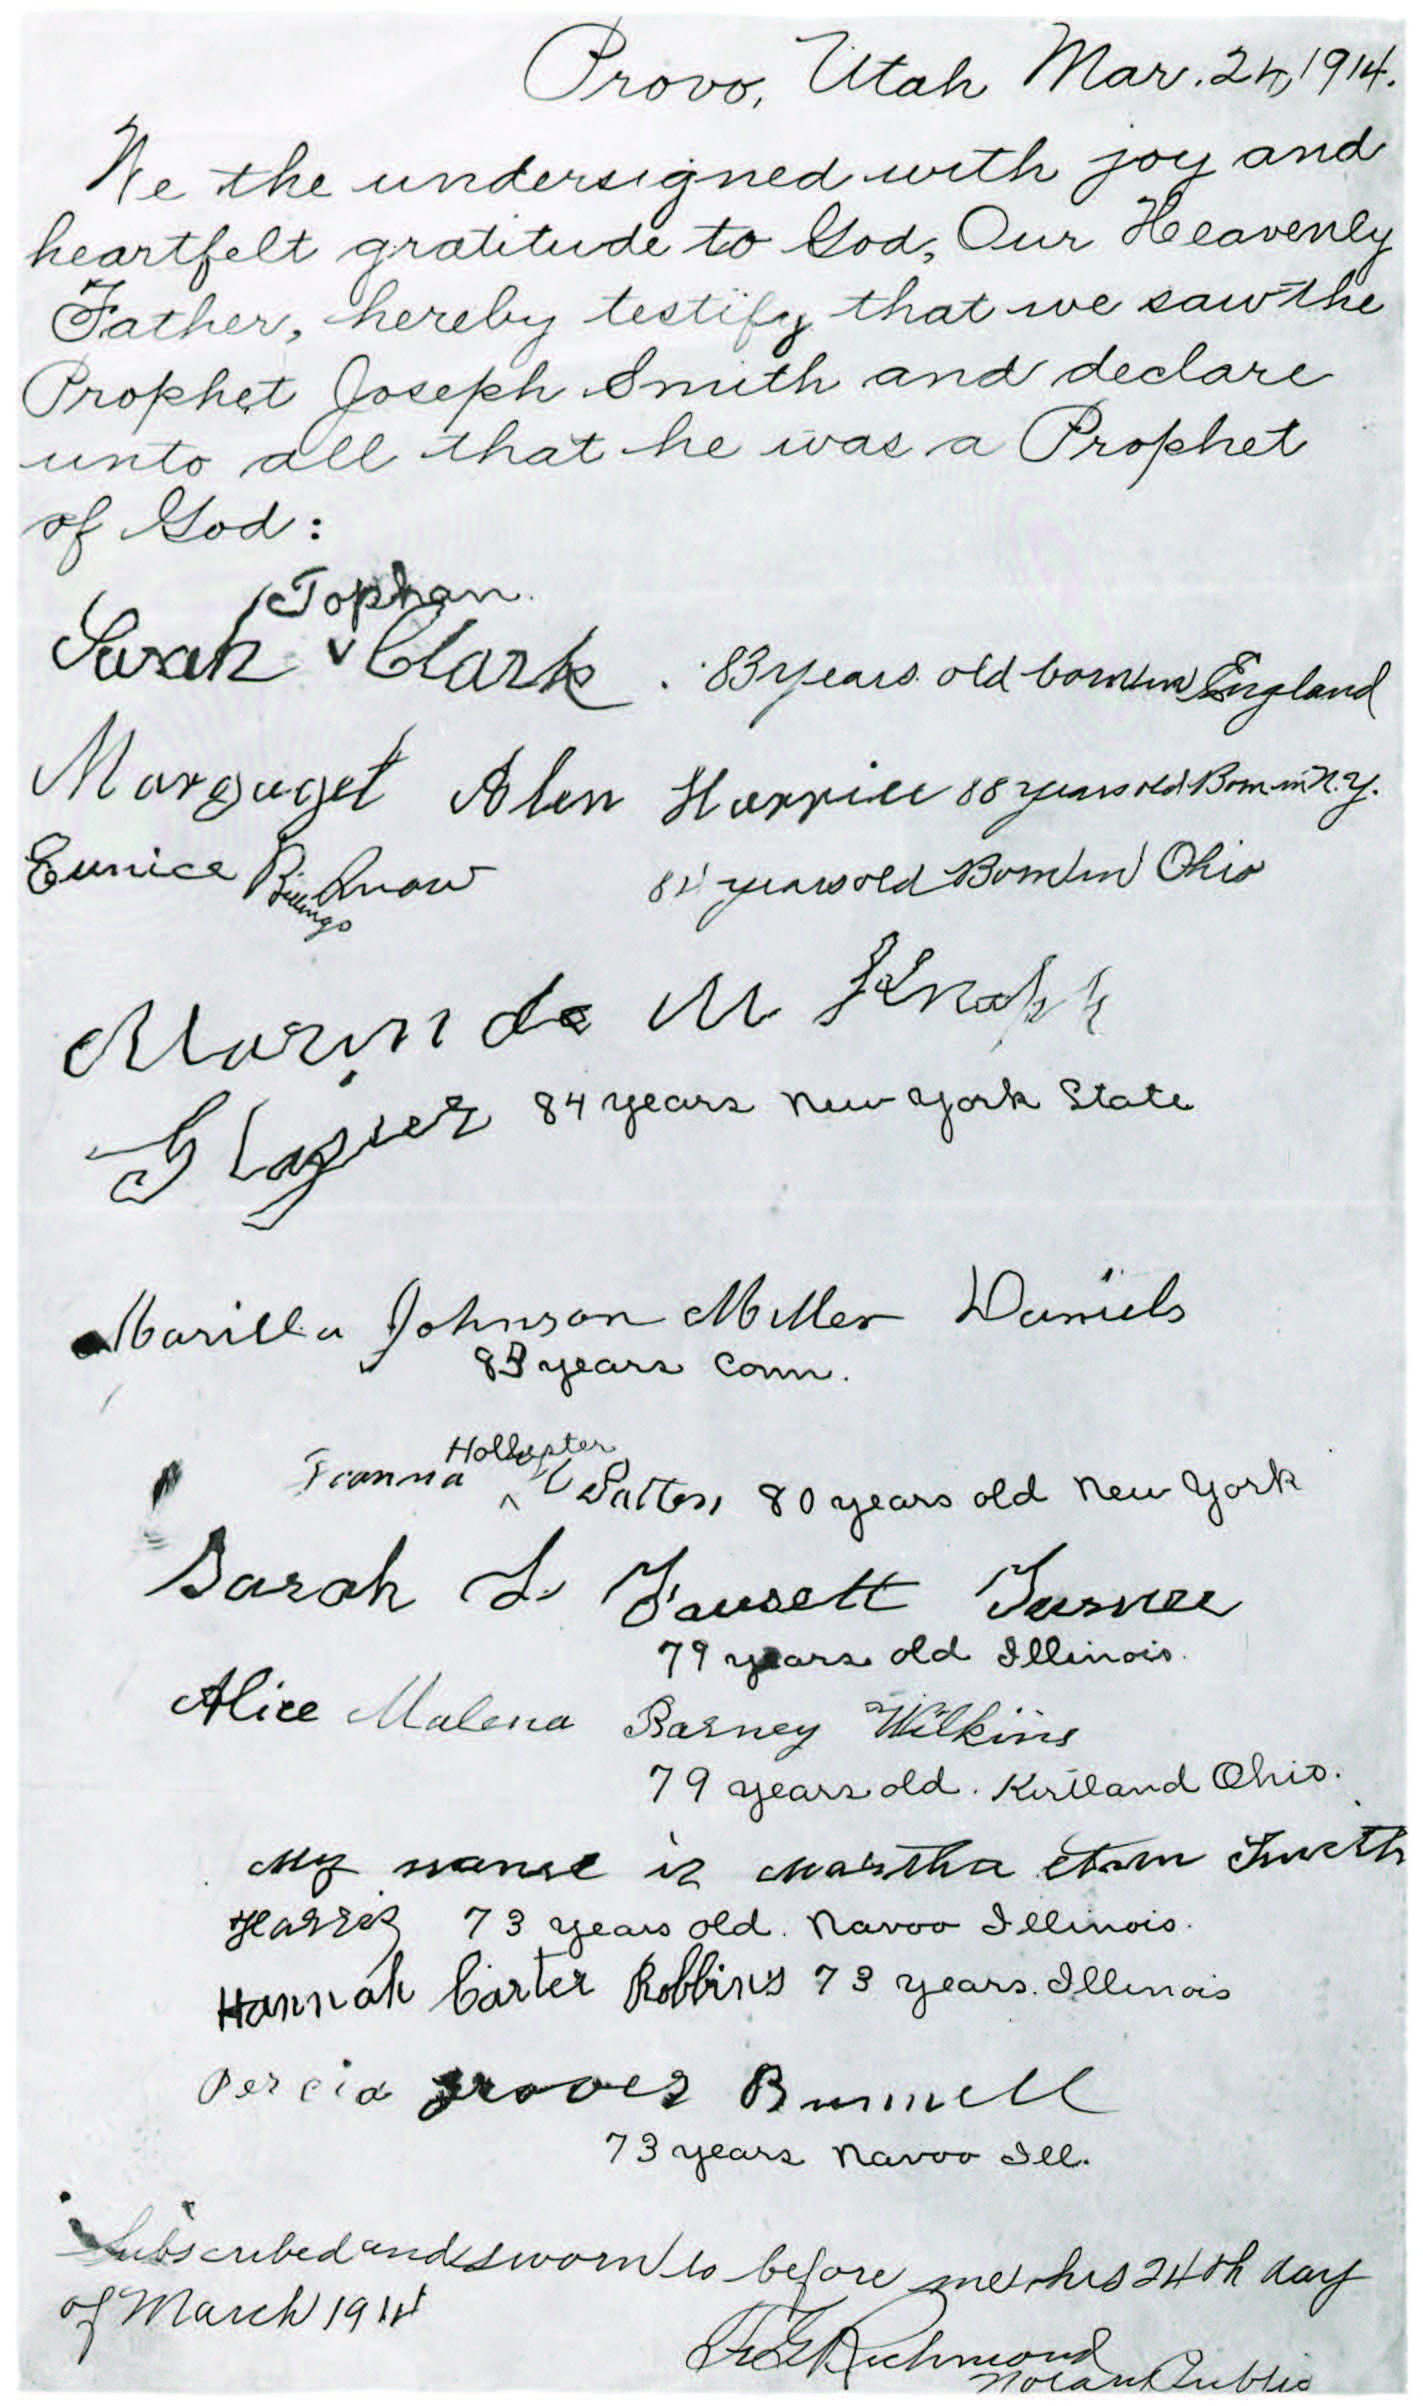 Provo, Utah Mar. 24, 1914.
We the undersigned with joy and
heartfelt gratitude to God, Our Heavenly
Father, hereby testify that we saw the
Prophet Joseph Smith and declare
unto all that he was a Prophet
of God:
Tophan
Sarah Clark. 83 years old born in England
Margaget Alen Harrice 88 years old Born in N.Y.
Eunice Snow 84 years old Born in Ohio
Billings
Marinda M Knapp
Glazier 84 years New York State
Marilla Johnson Miller Daniels
83 years Conn.
Hollister
Patten 80 years old New York
Sarah L. Fausett Turner
79 years old Illinois.
Alice Malena Barney Wilkins
79 years old. Kirtland Ohio.
My name is Martha Ann Smith
Harris 73 years old. Navoo Illinois.
Hannah Carter Robbins 73 years. Illinois
Percia Groves Bunnell
73 years Navoo Ill.
Subscribed and sworn to before me this 24th day
of March 1914
Richmond
Notary Public